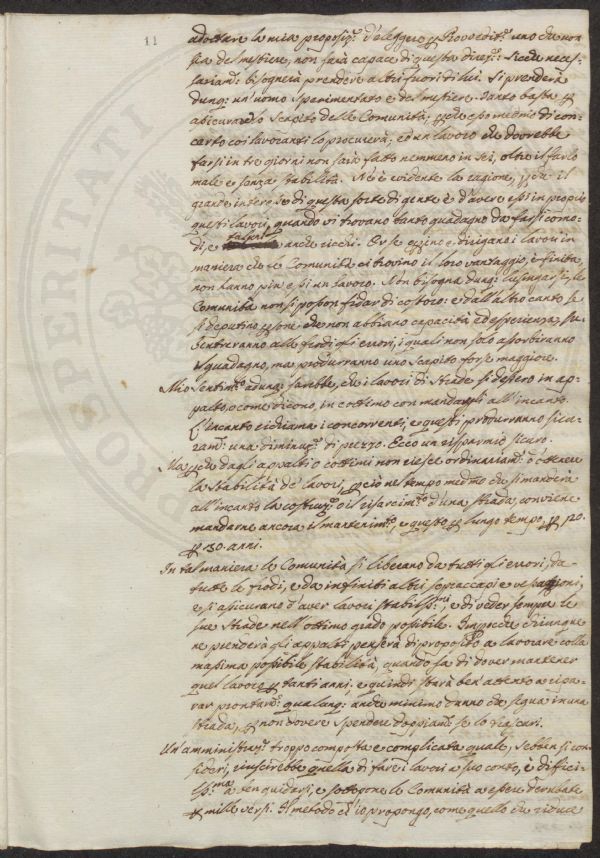 11
adottare la mia proposiz.e d'eleggere p Provedit.e uno che non
sia del mestiere, non sarà capace di questa direz.e: Siede neces-
sariam.e bisognerà prendere altri fuori di lui. Si prenderà
dunq: un'uomo sperimentato e del mestiere. Tanto basta p
assicurare lo scapito delle Comunità; p che esso medmo di con-
certo coi lavoranti lo procurerà; ed un lavoro che dovrebbe
farsi in tre giorni non sarà fatto nemmeno in sei, oltre il farlo
male e senza stabilità. Ne è evidente la ragione, p che il
grande interesse di questa sorte di gente è d'avere essi in propio
questi lavori, quando vi trovano tanto guadagno da farsi como-
di, e talora anche ricchi. Or se eglino e dirigano i lavori in
maniera che le Comunità ci trovino il loro vantaggio, è finita
non hanno più essi un lavoro. Non bisogna dunq: lusingarsi; le
Comunità non si posson fidar di costoro: e dall'altro canto se
si deputino psone che non abbiano capacità ed esperienza, su-
bentreranno alle frodi gli errori, i quali non solo assorbiranno
il guadagno, ma produrranno uno scapito forse maggiore.
Mio sentim.to adunq: sarebbe, che i lavori di strade si dessero in ap-
palto, o come dicono, in cottimo con mandargli all'incanto.
L'incanto richiama i concorrenti, e questi produrranno sicu-
ram.e una diminuz.e di prezzo. Ecco un risparmio sicuro.
Ma p che dagli appalti o cottimi non riesce ordinariam.e d'ottenere
la stabilità de' lavori, p ciò nel tempo medmo che si manderà
all'incanto la costruz.e o il risarcim.to d'una strada, conviene
mandarne ancora il mantenim.to, e questo p lungo tempo, p 20.
p 30. anni.
In tal maniera le Comunità si liberano da tutti gli errori, da
tutte le frodi, e da infiniti altri sopraccapi e vessazioni,
e si assicurano d'aver lavori stabiliss.mi, e di veder sempre le
sue strade nell'ottimo grado possibile. Imperocchè chiunque
ne prenderà gli appalti penserà di proposito a lavorare colla
massima possibile stabilità, quando sa di dover mantener
quel lavoro p tanti anni; e quindi starà ben attento a ripa-
rar prontam.e qualunq: anche minimo danno che segua in una
strada, p non dovere spendere doppiam.e se lo trascuri.
Un'amministraz.e troppo composta e complicata quale, sebben si con-
sideri, riuscirebbe quella di fare i lavori a suo conto, è diffici-
liss.ma a ben guidarsi, e sottopone le Comunità a essere derubate
p mille versi. Il metodo ch'io propongo, come quello che riduce